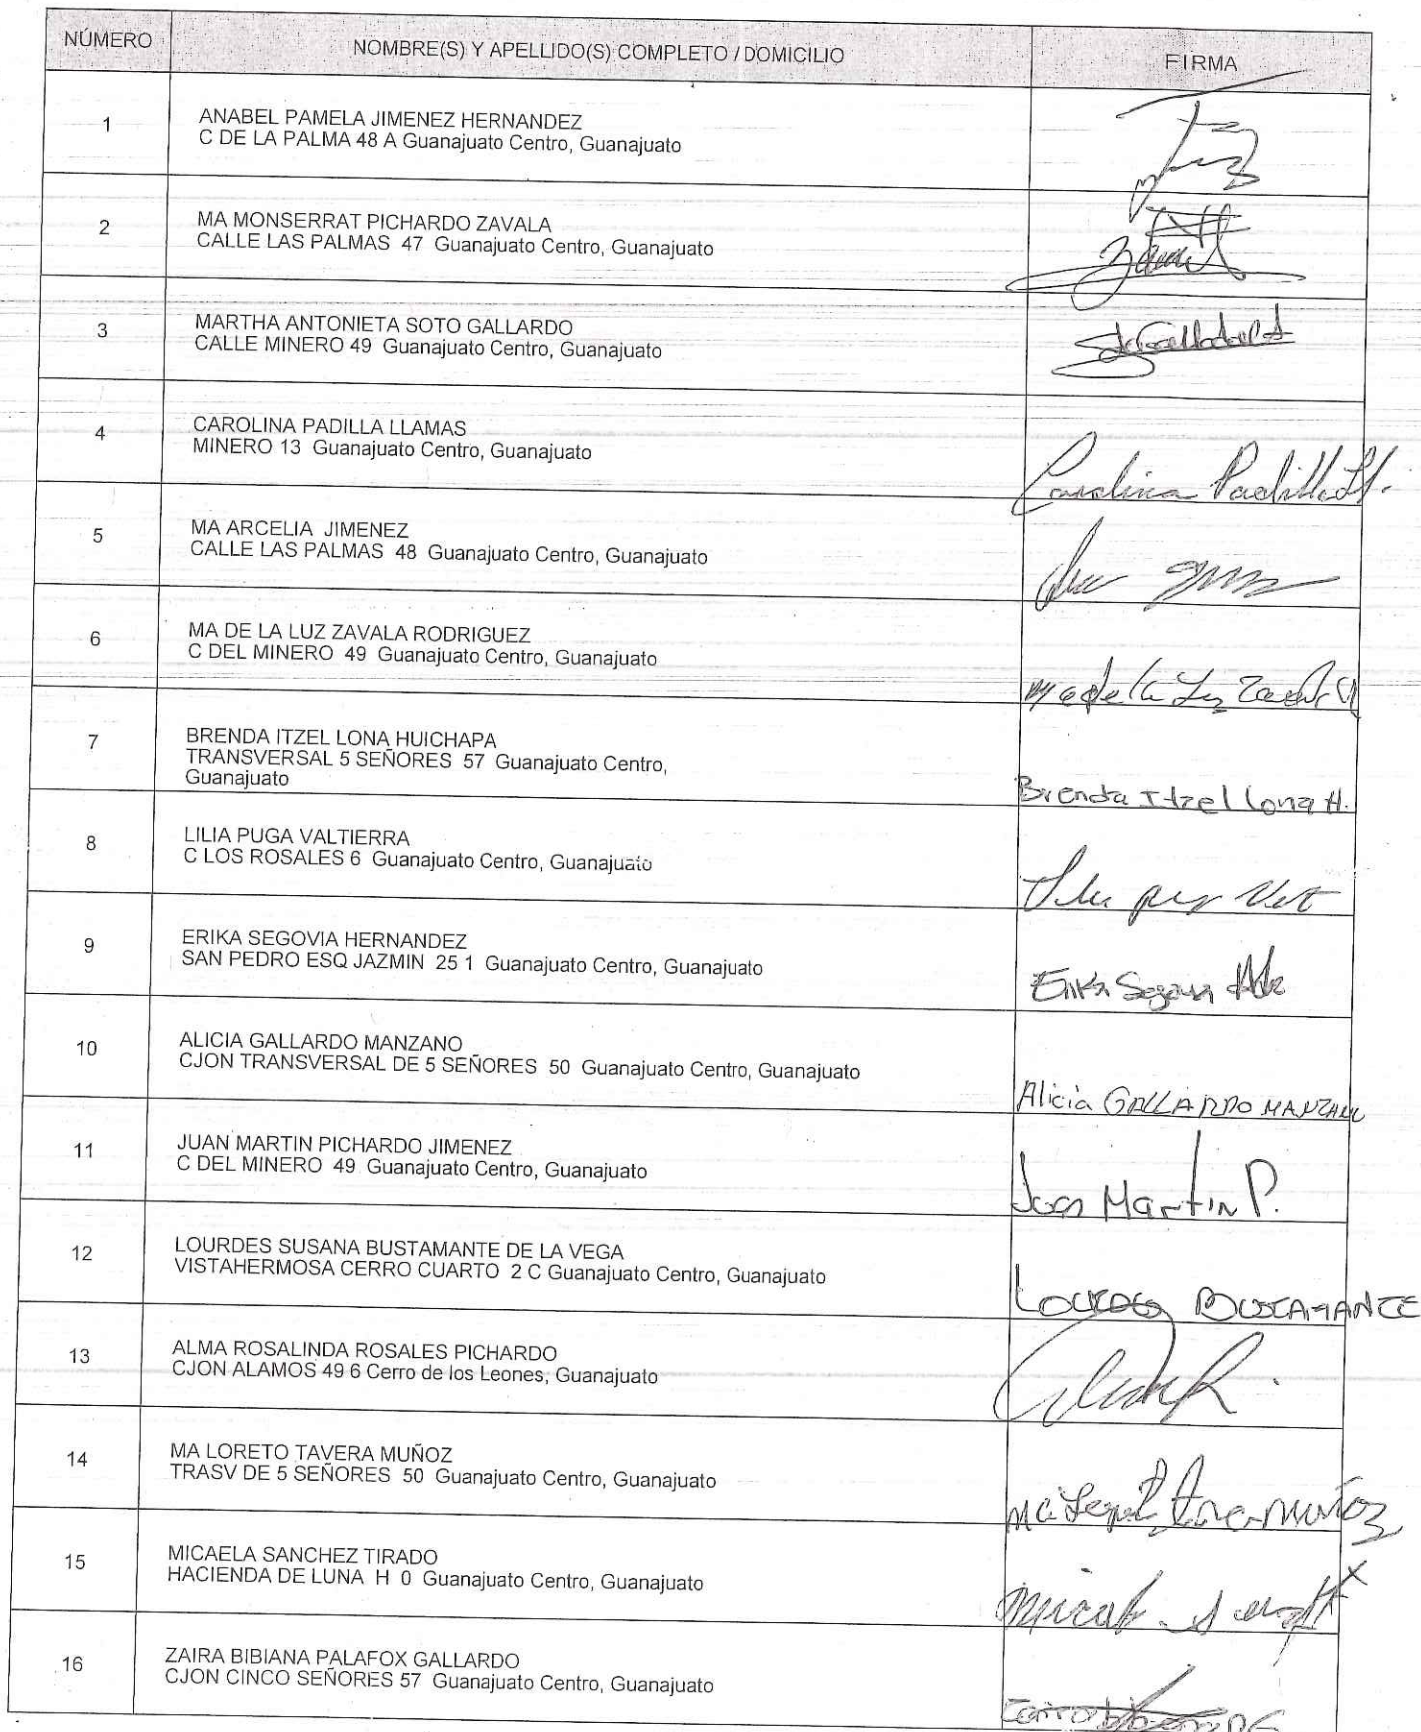 NÚMERO NOMBRE(S) Y APELLIDO(S) COMPLETO / DOMICILIO FIRMA
1 ANABEL PAMELA JIMENEZ HERNANDEZ
C DE LA PALMA 48 A Guanajuato Centro, Guanajuato
2 MA MONSERRAT PICHARDO ZAVALA
CALLE LAS PALMAS 47 Guanajuato Centro, Guanajuato
3 MARTHA ANTONIETA SOTO GALLARDO
CALLE MINERO 49 Guanajuato Centro, Guanajuato
4 CAROLINA PADILLA LLAMAS
MINERO 13 Guanajuato Centro, Guanajuato
Carolina Padilla Ll.
5 MA ARCELIA JIMENEZ
CALLE LAS PALMAS 48 Guanajuato Centro, Guanajuato
6 MA DE LA LUZ ZAVALA RODRIGUEZ
C DEL MINERO 49 Guanajuato Centro, Guanajuato
Ma de la Luz Zavala R
7 BRENDA ITZEL LONA HUICHAPA
TRANSVERSAL 5 SEÑORES 57 Guanajuato Centro,
Guanajuato
Brenda Itzel Lona H.
8 LILIA PUGA VALTIERRA
C LOS ROSALES 6 Guanajuato Centro, Guanajuato
9 ERIKA SEGOVIA HERNANDEZ
SAN PEDRO ESQ JAZMIN 25 1 Guanajuato Centro, Guanajuato
Erika Segovia Hdz
10 ALICIA GALLARDO MANZANO
CJON TRANSVERSAL DE 5 SEÑORES 50 Guanajuato Centro, Guanajuato
Alicia GALLARDO MANZANO
11 JUAN MARTIN PICHARDO JIMENEZ
C DEL MINERO 49 Guanajuato Centro, Guanajuato
Juan Martin P.
12 LOURDES SUSANA BUSTAMANTE DE LA VEGA
VISTAHERMOSA CERRO CUARTO 2 C Guanajuato Centro, Guanajuato
LOURDES BUSTAMANTE
13 ALMA ROSALINDA ROSALES PICHARDO
CJON ALAMOS 49 6 Cerro de los Leones, Guanajuato
14 MA LORETO TAVERA MUÑOZ
TRASV DE 5 SEÑORES 50 Guanajuato Centro, Guanajuato
15 MICAELA SANCHEZ TIRADO
HACIENDA DE LUNA H 0 Guanajuato Centro, Guanajuato
16 ZAIRA BIBIANA PALAFOX GALLARDO
CJON CINCO SEÑORES 57 Guanajuato Centro, Guanajuato